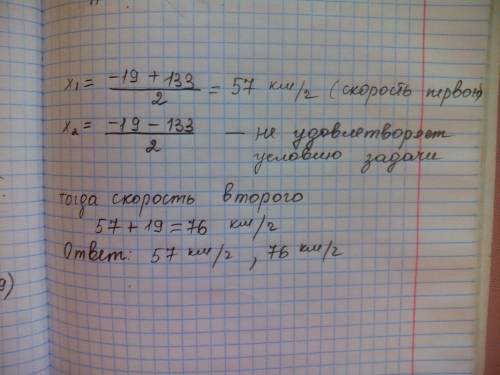 x₁ = (-19 + 133)/2 = 57 км/г (скорость первого)
x₂ = (-19 - 133)/2 — не удовлетворяет
условию задачи
тогда скорость второго
57 + 19 = 76 км/г
Ответ: 57 км/г, 76 км/г
9)